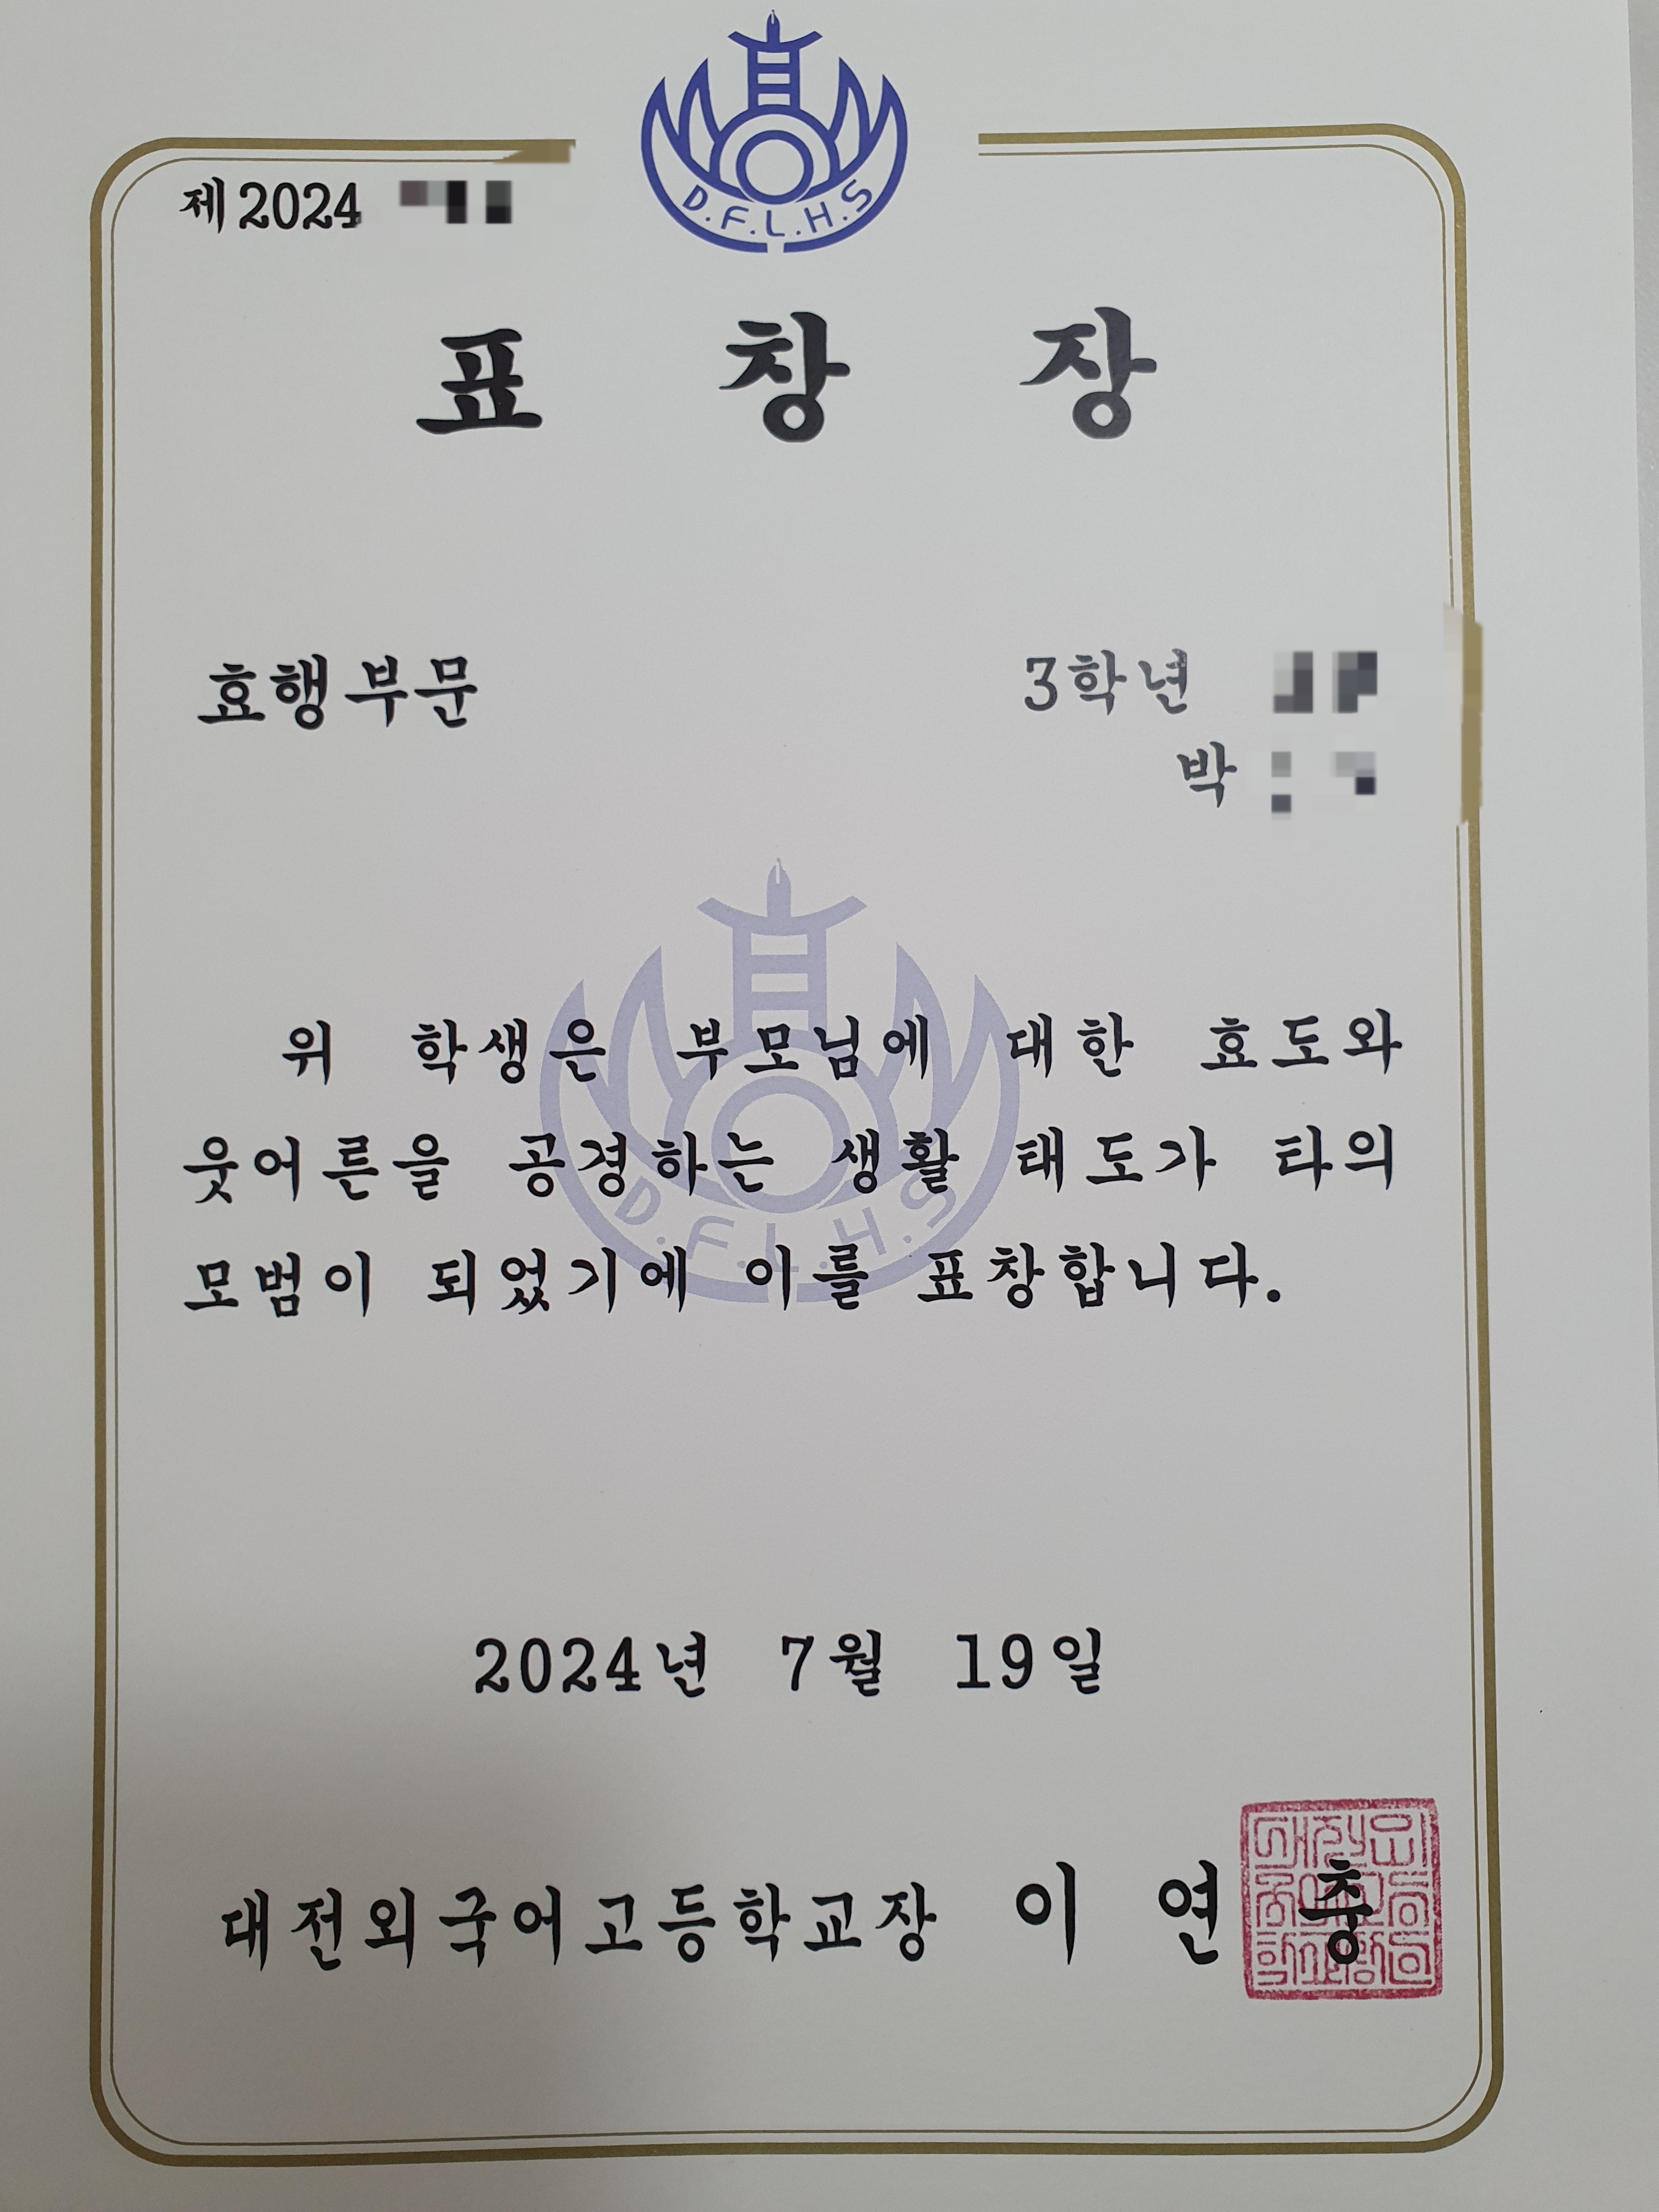 D.F.L.H.S
제2024
표 창 장
효행부문
3학년
박
위 학생은 부모님에 대한 효도와
웃어른을 공경하는 생활 태도가 타의
모범이 되었기에 이를 표창합니다.
D.F.L.H.S
2024년 7월 19일
대전외국어고등학교장 이 연 충